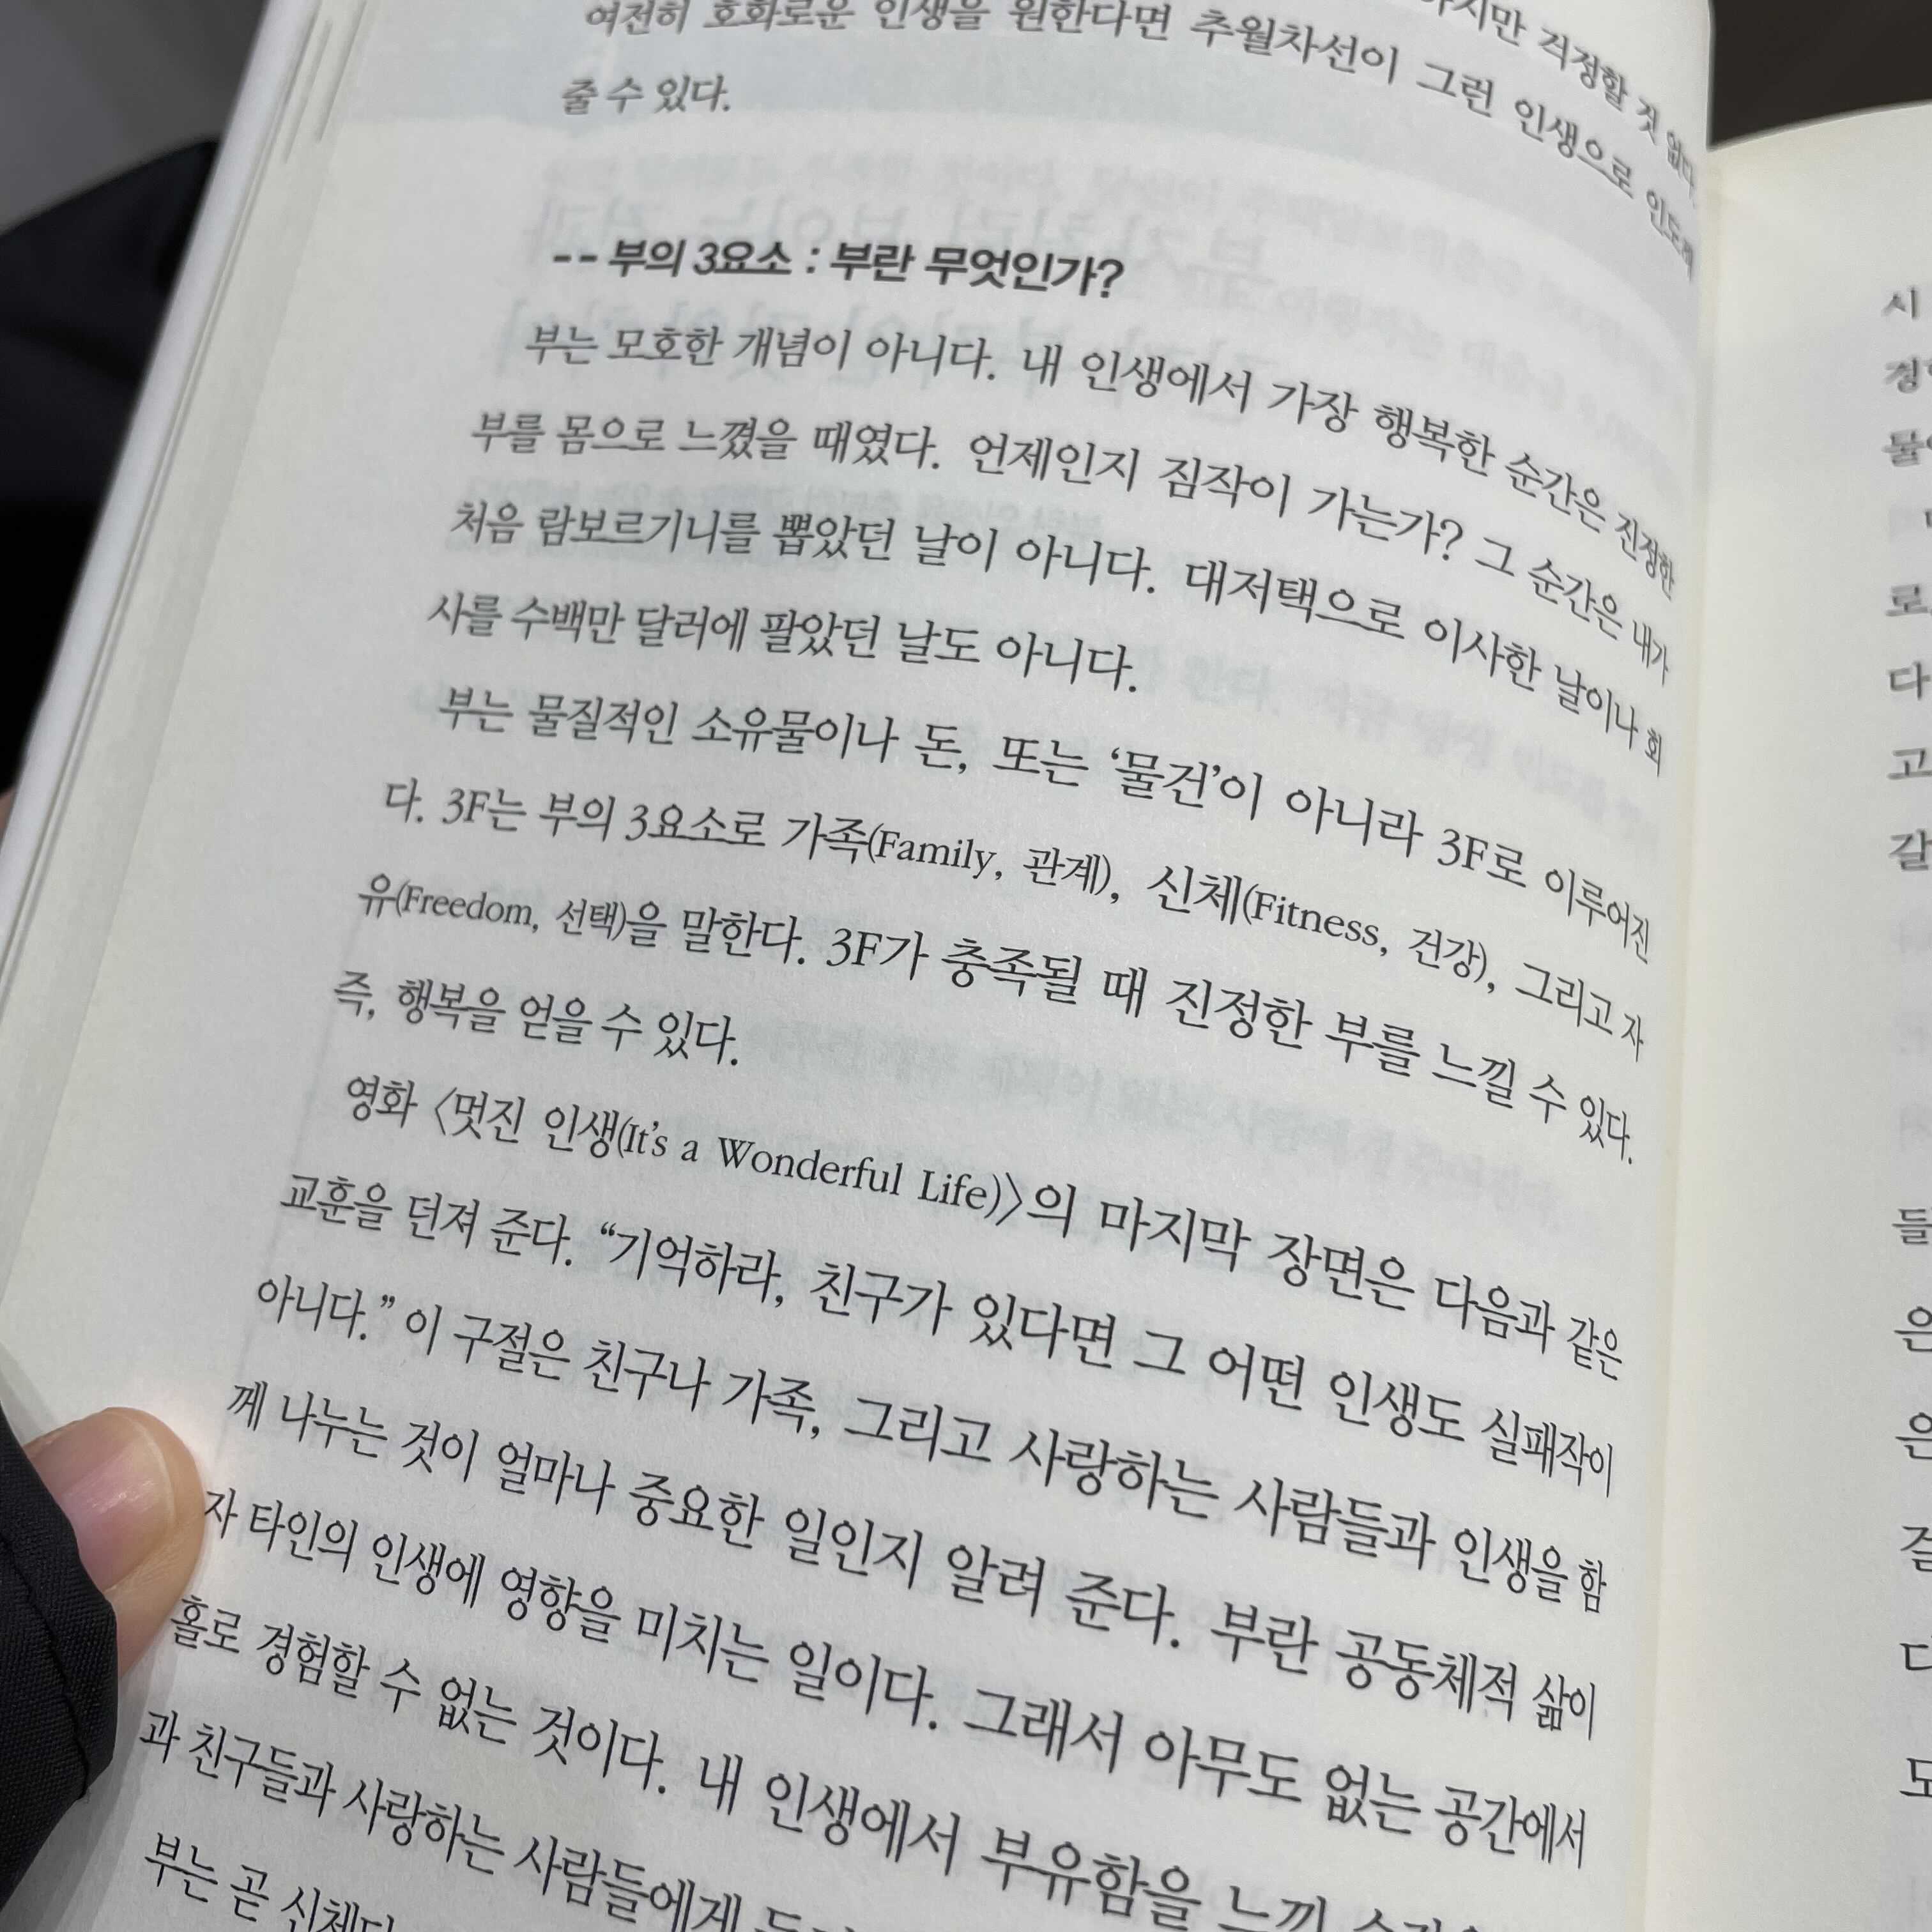 하지만 걱정할 것 없다.
여전히 호화로운 인생을 원한다면 추월차선이 그런 인생으로 인도해
줄 수 있다.
-- 부의 3요소 : 부란 무엇인가?
부는 모호한 개념이 아니다. 내 인생에서 가장 행복한 순간은 진정한
부를 몸으로 느꼈을 때였다. 언제인지 짐작이 가는가? 그 순간은 내가
처음 람보르기니를 뽑았던 날이 아니다. 대저택으로 이사한 날이나 회
사를 수백만 달러에 팔았던 날도 아니다.
부는 물질적인 소유물이나 돈, 또는 ‘물건’이 아니라 3F로 이루어진
다. 3F는 부의 3요소로 가족(Family, 관계), 신체(Fitness, 건강), 그리고 자
유(Freedom, 선택)을 말한다. 3F가 충족될 때 진정한 부를 느낄 수 있다.
즉, 행복을 얻을 수 있다.
영화 〈멋진 인생(It’s a Wonderful Life)〉의 마지막 장면은 다음과 같은
교훈을 던져 준다. “기억하라, 친구가 있다면 그 어떤 인생도 실패작이
아니다.” 이 구절은 친구나 가족, 그리고 사랑하는 사람들과 인생을 함
께 나누는 것이 얼마나 중요한 일인지 알려 준다. 부란 공동체적 삶이
자 타인의 인생에 영향을 미치는 일이다. 그래서 아무도 없는 공간에서
홀로 경험할 수 없는 것이다. 내 인생에서 부유함을 느낀
과 친구들과 사랑하는 사람들에게
부는 곧 신체다
시
로
다
고
갈
들
은
은